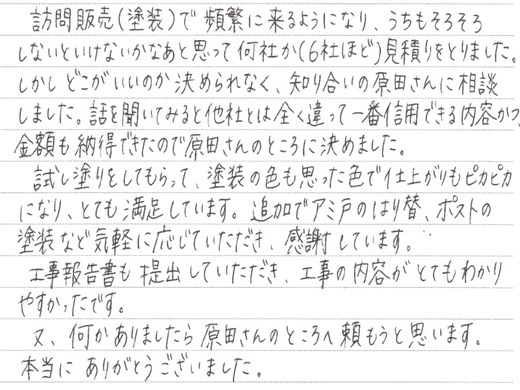 訪問販売(塗装)で頻繁に来るようになり、うちもそろそろ
しないといけないかなあと思って何社か(6社ほど)見積りをとりました。
しかしどこがいいのか決められなく、知り合いの原田さんに相談
しました。話を聞いてみると他社とは全く違って一番信用できる内容かつ
金額も納得できたので原田さんのところに決めました。
試し塗りをしてもらって、塗装の色も思った色で仕上がりもピカピカ
になり、とても満足しています。追加でアミ戸のはり替、ポストの
塗装など気軽に応じていただき、感謝しています。
工事報告書も提出していただき、工事の内容がとてもわかり
やすかったです。
又、何かありましたら原田さんのところへ頼もうと思います。
本当にありがとうございました。